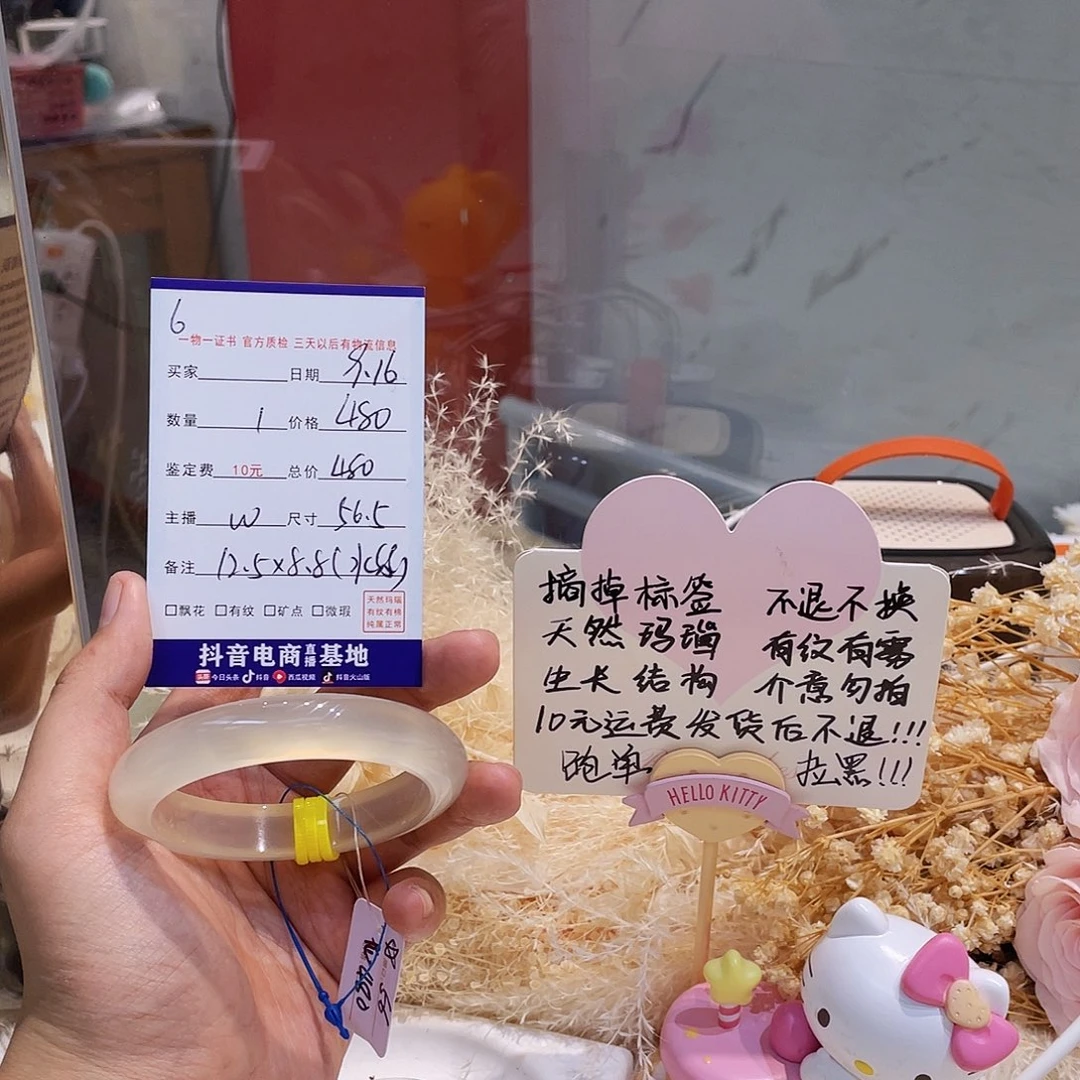 6
一物一证书 官方质检 三天以后有物流信息
买家 日期 9.16
数量 1 价格 480
鉴定费 10元 总价 480
主播 W 尺寸 56.5
备注 12.5×8.8
□飘花 □有纹 □矿点 □微瑕
天然玛瑙
有纹有棉
纯属正常
抖音电商直播基地
头条 今日头条 抖音 西瓜视频 抖音火山版
摘掉标签 不退不换
天然玛瑙 有纹有雾
生长结构 介意勿拍
10元运费发货后不退!!!
跑单 拉黑!!!
HELLO KITTY